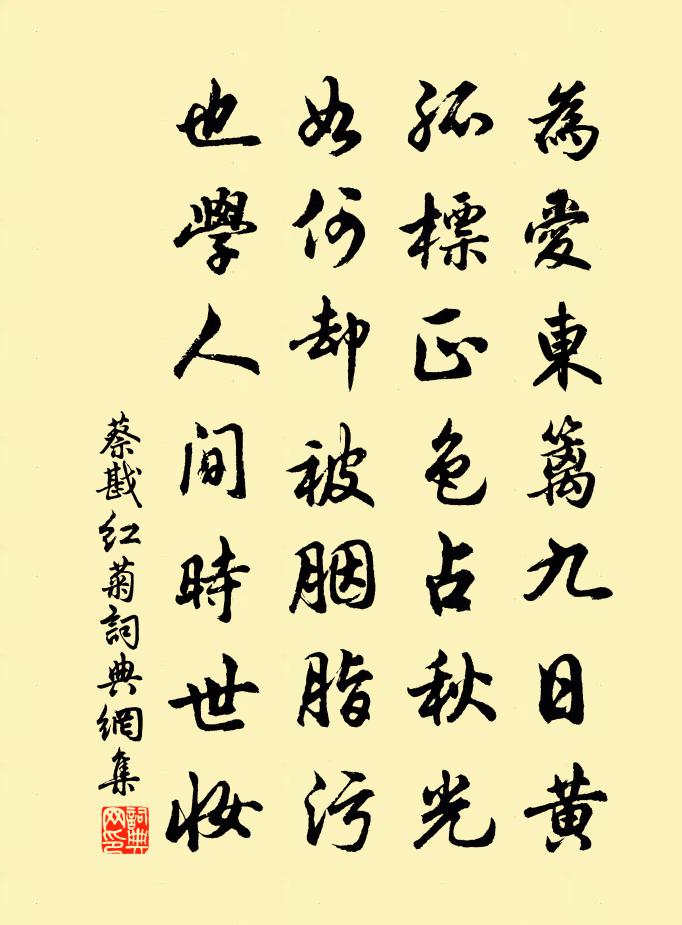 為愛東籬九日黃
孤標正色占秋光
如何却被胭脂污
也學人间時世妆
蔡戡红菊詞典網集
詞典网印